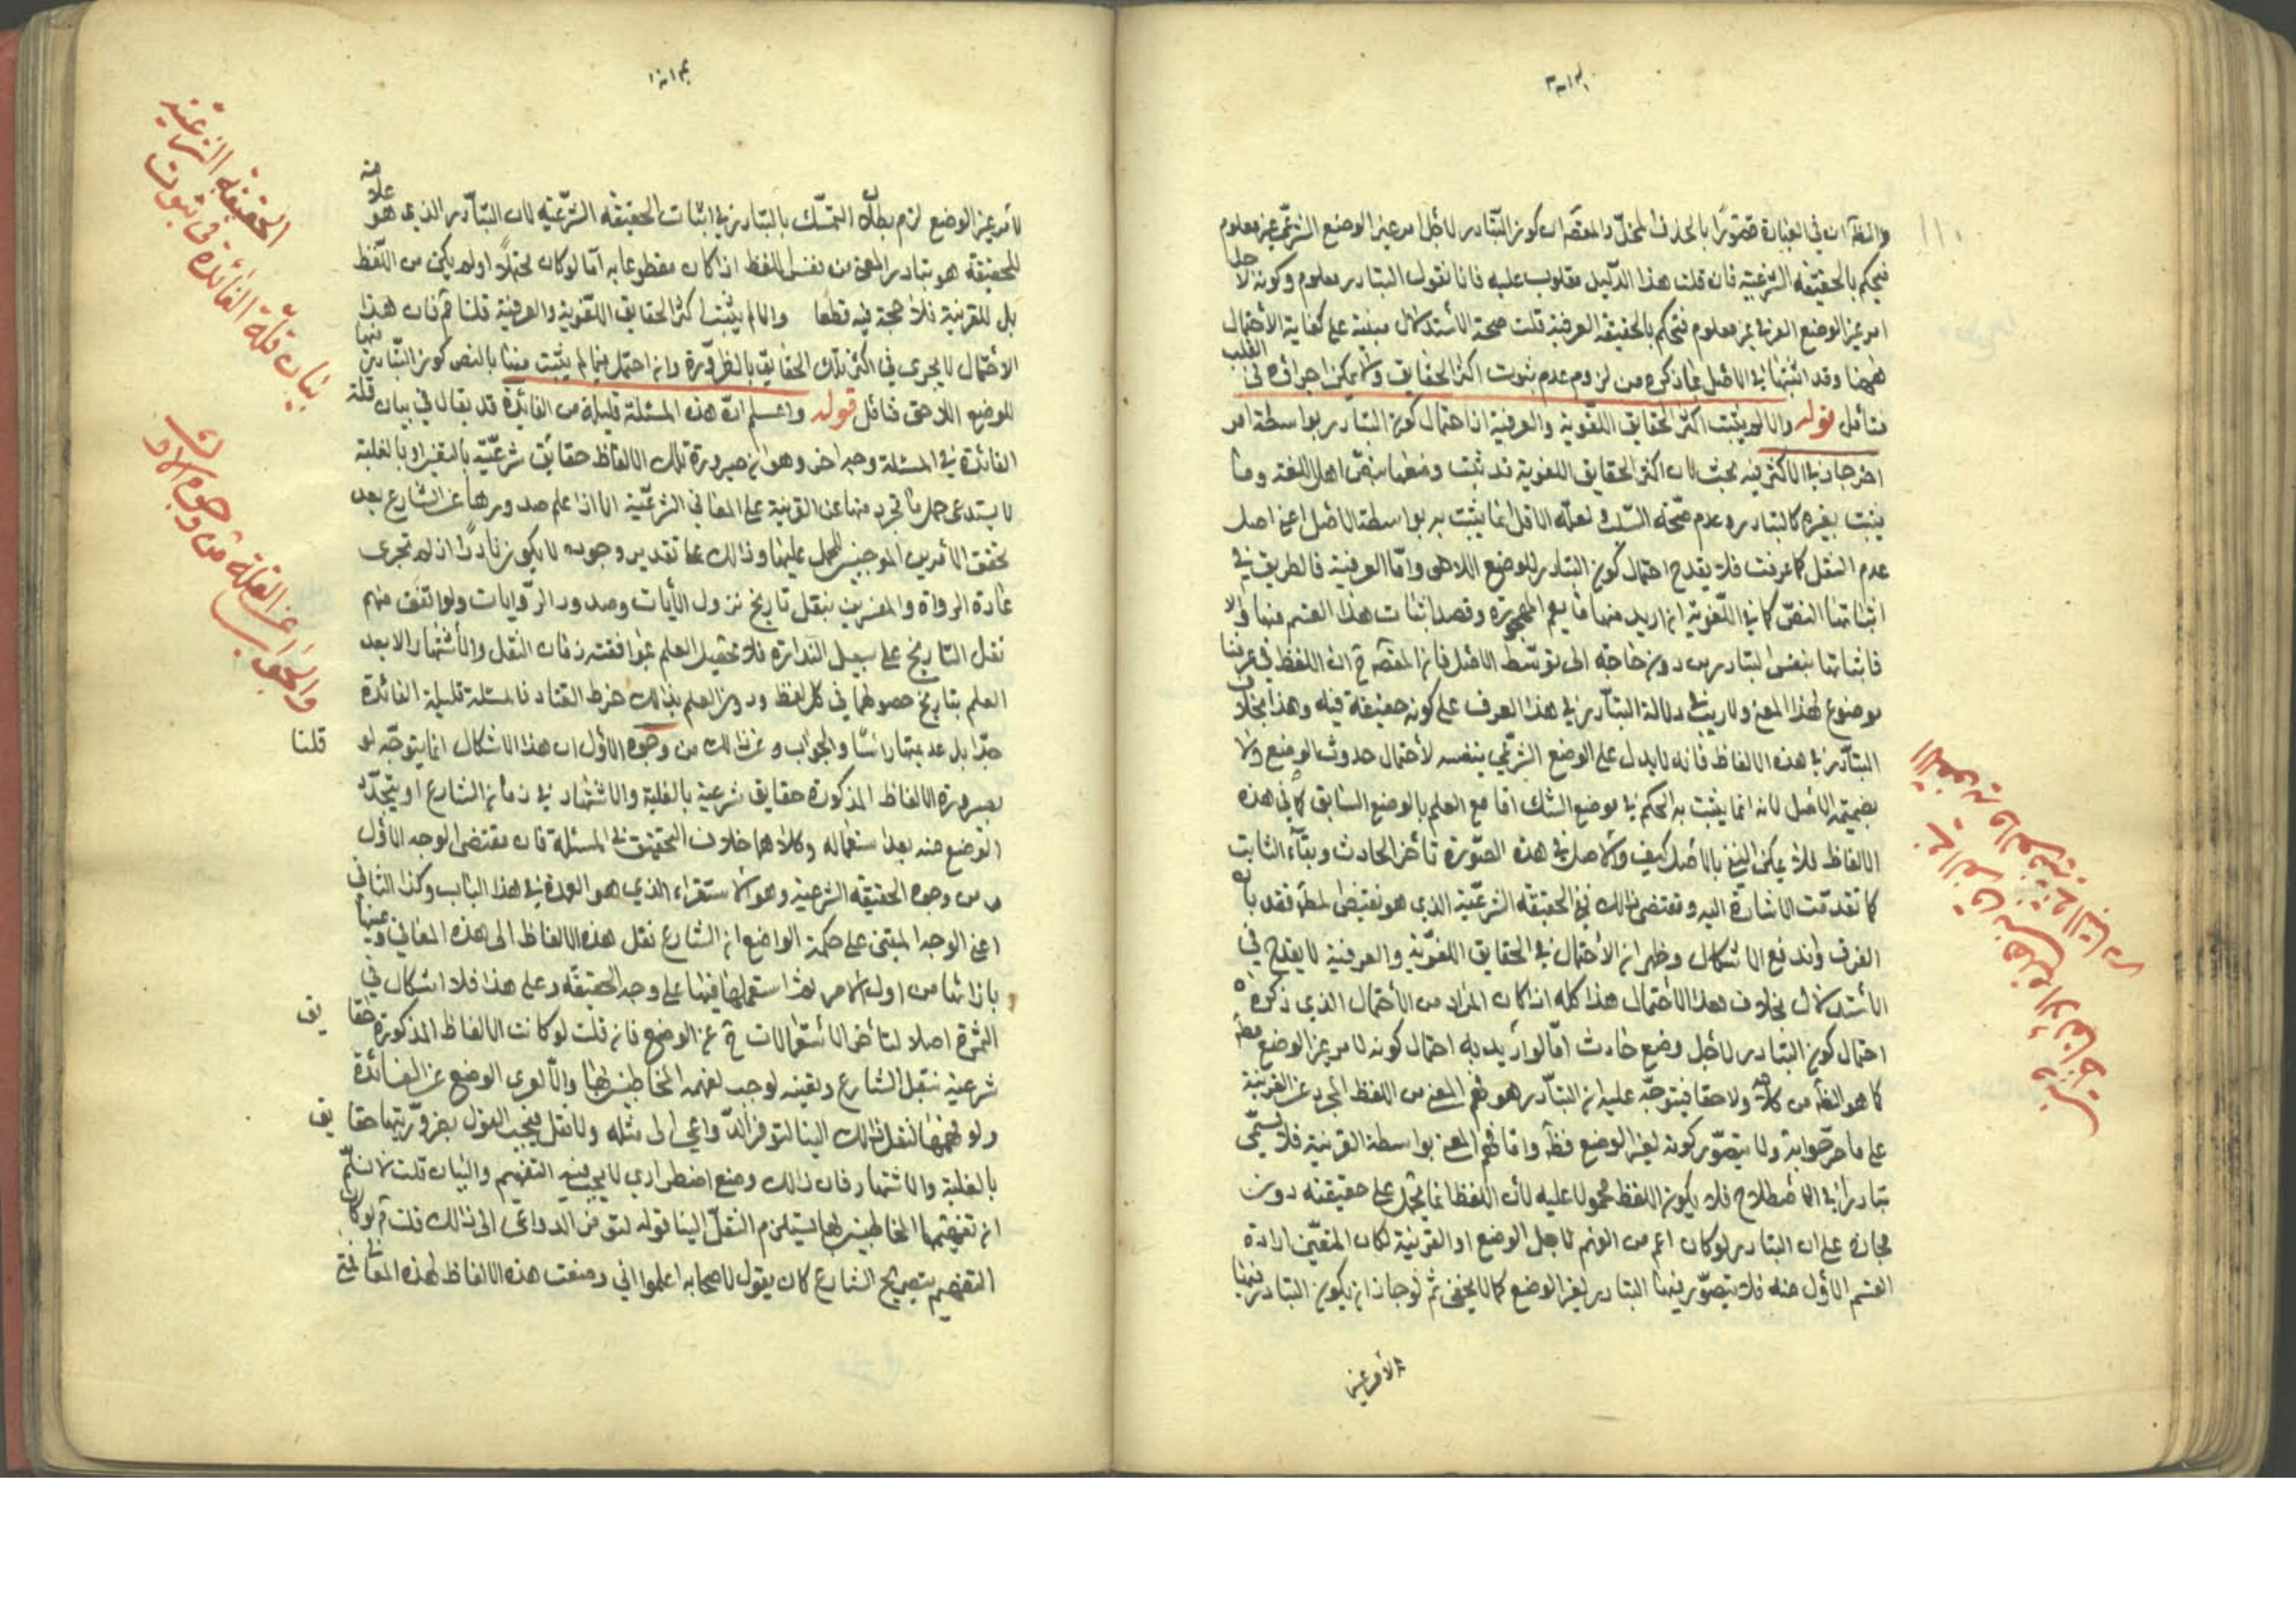 والظ ان في العبارة قصورا بالحذف المخل والمقصود ان كون التبادر لاجل امر غير الوضع الشرعي غير معلوم
فيحكم بالحقيقة الشرعية فان قلت هذا الدليل مقلوب عليه فانا نقول التبادر معلوم وكونه لاجل
امر غير الوضع العرفي غير معلوم فتحكم بالحقيقة العرفية قلت صحة الاستدلال مبنية على كفاية الاحتمال
ههنا وقد اثبتها في الاصل بما ذكره من لزوم عدم ثبوت اكثر الحقايق ولا يمكن اجراؤه في القلب
فتامل قوله والا لم يثبت اكثر الحقايق اللغوية والعرفية اذ احتمال كون التبادر بواسطة امر
اخر جار في الاكثر فيه بحث لان اكثر الحقايق اللغوية قد ثبت وضعها بنص اهل اللغة وما
يثبت بغيره كالتبادر وعدم صحة السلب ولعله الاقل انما يثبت به بواسطة الاصل اعني اصل
عدم النقل كما عرفت فلا يقدح احتمال كون التبادر للوضع اللاحق واما العرفية فالطريق في
اثباتها النص كما في اللغوية ان اريد منها ما يعم المهجورة وقصد اثبات هذا القسم منها والا
فاثباتها بنفس التبادر من دون حاجة الى توسط الاصل فان المقص ح ان اللفظ في عرفنا
موضوع لهذا المعنى ولا ريب في دلالة التبادر في هذا العرف على كونه حقيقة فيه وهذا بخلاف
التبادر في هذه الالفاظ فانه لا يدل على الوضع الشرعي بنفسه لاحتمال حدوث الوضع ولا
بضميمة الاصل لانه انما يثبت به الحكم في موضع الشك اما مع العلم بالوضع السابق كما في هذه
الالفاظ فلا يمكن النفي بالاصل كيف والاصل في هذه الصورة تاخر الحادث وبقاء الثابت
كما تقدمت الاشارة اليه ومقتضى ذلك نفي الحقيقة الشرعية الذي هو نقيض المط فقد بان
الفرق واندفع الاشكال وظهر ان الاحتمال في الحقايق اللغوية والعرفية لا يقدح في
الاستدلال بخلاف هذا الاحتمال هذا كله اذا كان المراد من الاحتمال الذي ذكره
احتمال كون التبادر لاجل وضع حادث اما لو اريد به احتمال كونه لامر غير الوضع مط
كما هو الظ من كلامه ولاحقا فيتوجه عليه ان التبادر هو فهم المعنى من اللفظ المجرد عن القرينة
على ما صرحوا به ولا يتصور كونه لغير الوضع قط واما فهم المعنى بواسطة القرينة فلا يسمى
تبادرا في الاصطلاح فلا يكون اللفظ محمولا عليه لان اللفظ انما يحمل على حقيقته دون
مجازه على ان التبادر لو كان اعم من الفهم لاجل الوضع او القرينة لكان المتعين ارادة
القسم الاول منه فلا يتصور فيها التبادر لغير الوضع كما لا يخفى ثم لو جاز ان يكون التبادر فيها
لامر غير الوضع لزم بطلان التمسك بالتبادر في اثبات الحقيقة الشرعية لان التبادر الذي هو علامة
للحقيقة هو تبادر المعنى من نفس اللفظ اذا كان مقطوعا به اما لو كان محتملا او لم يكن من اللفظ
بل للقرينة فلا حجة فيه قطعا والا لم يثبت اكثر الحقايق اللغوية والعرفية قلنا ثم فان هذا
الاحتمال لا يجرى في اكثر تلك الحقايق بالضرورة وان احتمل فيما لم يثبت منها بالنص كون التبادر منها
للوضع اللاحق فتامل قوله واعلم ان هذه المسئلة قليلة من الفائدة قد يقال في بيان قلة
الفائدة في المسئلة وجه اخر وهو ان صيرورة تلك الالفاظ حقائق شرعية بالتعيين او بالغلبة
لا يستدعى حمل ما تجرد منها عن القرينة على المعاني الشرعية الا اذا علم صدورها عن الشارع بعد
تحقق الامرين الموجبين للحمل عليها وذلك على تقدير وجوده لا يكون نادرا اذ لم تجرى
عادة الرواة والمفسرين بنقل تاريخ نزول الايات وصدور الروايات ولو اتفق منهم
نقل التاريخ على سبيل الندرة فلا تحصيل العلم بموافقته زمان النقل والاشتهار الا بعد
العلم بتاريخ حصولهما في كل لفظ ودون العلم بذلك خرط القتاد فالمسئلة قليلة الفائدة
جدا بل عديمتها راسا والجواب عن ذلك من وجوه الاول ان هذا الاشكال انما يتوجه لو قلنا
بصيرورة الالفاظ المذكورة حقايق شرعية بالغلبة والاشتهار في زمان الشارع او بتجدد
الوضع منه بعد استعماله وكلاهما خلاف التحقيق في المسئلة فان مقتضى الوجه الاول
من وجوه الحقيقة الشرعية وهو الاستقراء الذي هو العمدة في هذا الباب وكذا الثاني
اعني الوجه المبتنى على حكمة الواضع ان الشارع نقل هذه الالفاظ الى هذه المعاني وعينها
بازائها من اول الامر ثم استعملها فيها على وجه الحقيقة وعلى هذا فلا اشكال في
الثمرة اصلا لتاخر الاستعمالات ح عن الوضع فان قلت لو كانت الالفاظ المذكورة حقايق
شرعية بنقل الشارع وتعينه لوجب تفهيمه المخاطبين بها والا لعرى الوضع عن الفائدة
ولو فهمها لنقل ذلك الينا لتوفر الدواعي الى مثله ولا نقل فيجب القول بصيرورتها حقايق
بالغلبة والاشتهار فان ذلك وضع اضطراري لا يجب فيه التفهيم والبيان قلت لا نسلم
ان تفهيمها المخاطبين بها يستلزم النقل الينا قوله لتوفر الدواعي الى ذلك قلت ثم لو كان
التفهيم بتصريح الشارع كان يقول لاصحابه اعلموا اني وضعت هذه الالفاظ لهذه المعاني
بيان قلة الفائدة في ثبوت
الحقيقة الشرعية
والجواب عن القلة من وجوه الاول